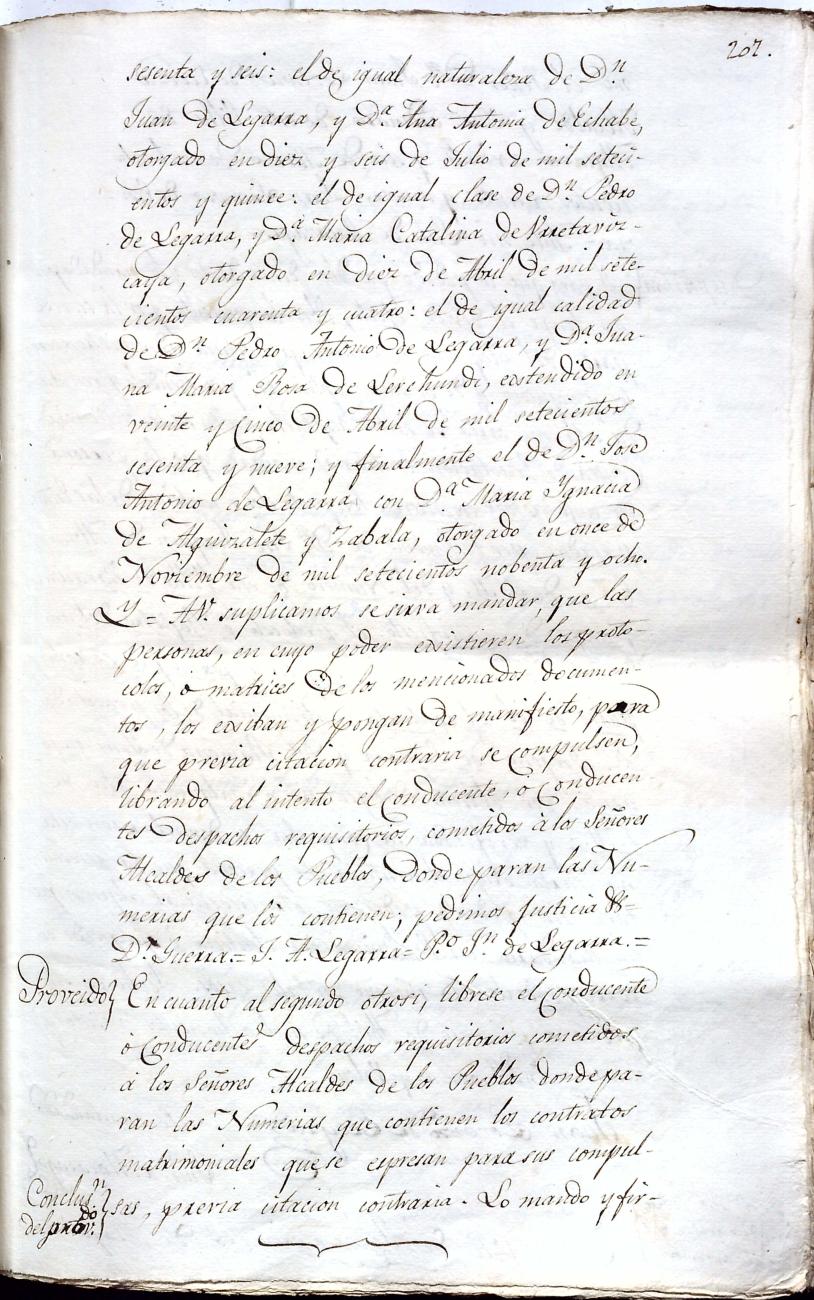 207.
sesenta y seis: el de igual naturaleza de Dⁿ.
Juan de Legarra, y Dª Ana Antonia de Echabe,
otorgado en diez y seis de Julio de mil seteci-
entos y quince: el de igual clase de Dⁿ. Pedro
de Legarra, y Dª. Maria Catalina de Urretaviz-
caya, otorgado en diez de Abril de mil sete-
cientos cuarenta y cuatro: el de igual calidad
de Dⁿ. Pedro Antonio de Legarra, y Dª. Jua-
na Maria Rosa de Lerchundi, extendido en
veinte y cinco de Abril de mil setecientos
sesenta y nueve; y finalmente el de Dⁿ. José
Antonio de Legarra con Dª. Maria Ygnacia
de Alquizalete y Zabala, otorgado en once de
Noviembre de mil setecientos nobenta y ocho.
Y = A V. suplicamos se sirva mandar, que las
personas, en cuyo poder existieren los proto-
colos, ó matrices de los mencionados documen-
tos, los exiban y pongan de manifiesto, para
que previa citacion contraria se compulsen,
librando al intento el conducente, o conducen-
tes despachos requisitorios, cometidos à los Señores
Alcaldes de los Pueblos, donde paran las Nu-
merias que los contienen; pedimos Justicia &=
Dʳ. Guerra.= J. A. Legarra= P.º Jⁿ. de Legarra.=
Proveido} En cuanto al segundo otrosi, librese el conducente
ò conducentes despachos requisitorios cometidos
á los Señores Alcaldes de los Pueblos donde pa-
ran las Numerias que contienen los contratos
matrimoniales que se expresan para sus compul-
Conclusⁿ. sas, previa citacion contraria. Lo mando y fir-
del